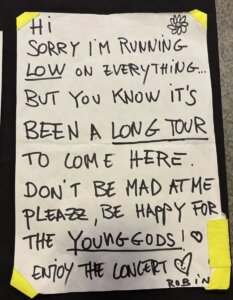 Hi
SORRY I'M RUNNING
LOW ON EVERYTHING...
BUT YOU KNOW IT'S
BEEN A LONG TOUR
TO COME HERE.
DON'T BE MAD AT ME
PLEAZZ, BE HAPPY FOR
THE YOUNG GODS!
ENJOY THE CONCERT
ROBIN